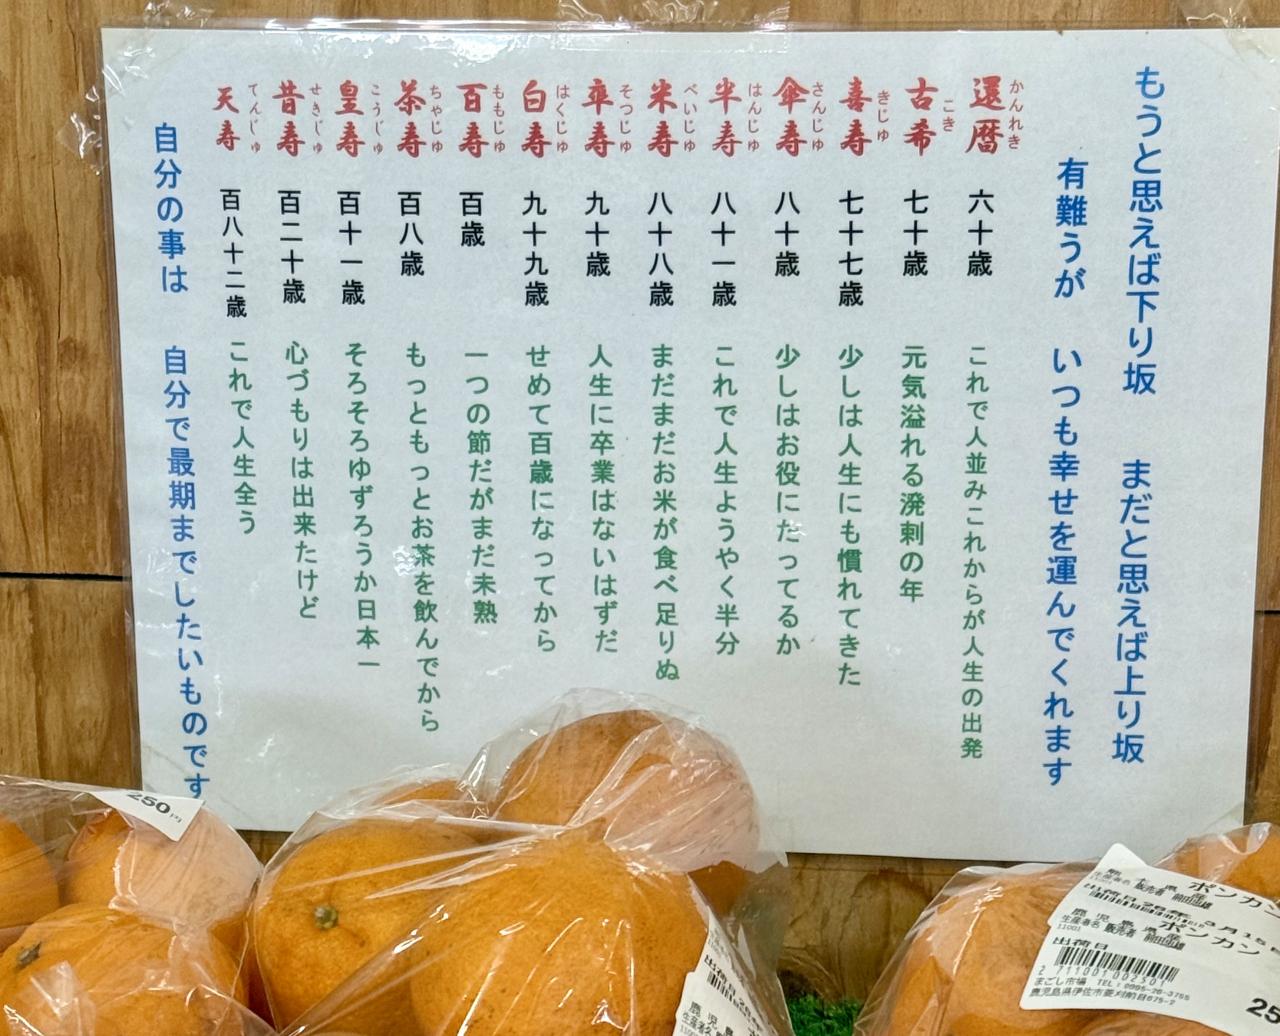 もうと思えば下り坂　まだと思えば上り坂
有難うが　いつも幸せを運んでくれます
還暦 かんれき 六十歳 これで人並みこれからが人生の出発
古希 こき 七十歳 元気溢れる溌剌の年
喜寿 きじゅ 七十七歳 少しは人生にも慣れてきた
傘寿 さんじゅ 八十歳 少しはお役にたってるか
半寿 はんじゅ 八十一歳 これで人生ようやく半分
米寿 べいじゅ 八十八歳 まだまだお米が食べ足りぬ
卒寿 そつじゅ 九十歳 人生に卒業はないはずだ
白寿 はくじゅ 九十九歳 せめて百歳になってから
百寿 ももじゅ 百歳 一つの節だがまだ未熟
茶寿 ちゃじゅ 百八歳 もっともっとお茶を飲んでから
皇寿 こうじゅ 百十一歳 そろそろゆずろうか日本一
昔寿 せきじゅ 百二十歳 心づもりは出来たけど
天寿 てんじゅ 百八十二歳 これで人生全う
自分の事は　自分で最期までしたいものです
250円
ポンカン
生産者名 販売者
出荷日 26年 3月15日
鹿児島県産
ポンカン
生産者名 販売者
11001
出荷日
まごし市場 TEL:0995-26-3755
鹿児島県伊佐市菱刈前目675-2
25
出荷日 26
鹿児島
生産者名